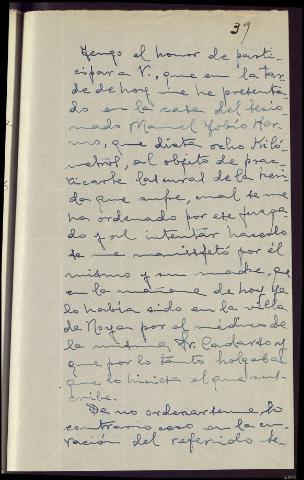 39
Tengo el honor de parti-
cipar a V., que en la tar-
de de hoy me he presenta-
do en la casa del lesio-
nado Manuel Tobío
que dista ocho kiló-
metros, al objeto de prac-
ticarle la cural de la heri-
da que sufre, cual se me
ha ordenado por ese juzga-
do y al intentar hacerlo
se me manifestó por él
mismo y su madre, que
en la mañana de hoy ya
lo había sido en la villa
de Noya por el médico de
la misma, Sr. Cadarso y
que por lo tanto holgaba
que lo hiciera el que sus-
cribe.
De no ordenarseme lo
contrario ceso en la cu-
ración del referido le-